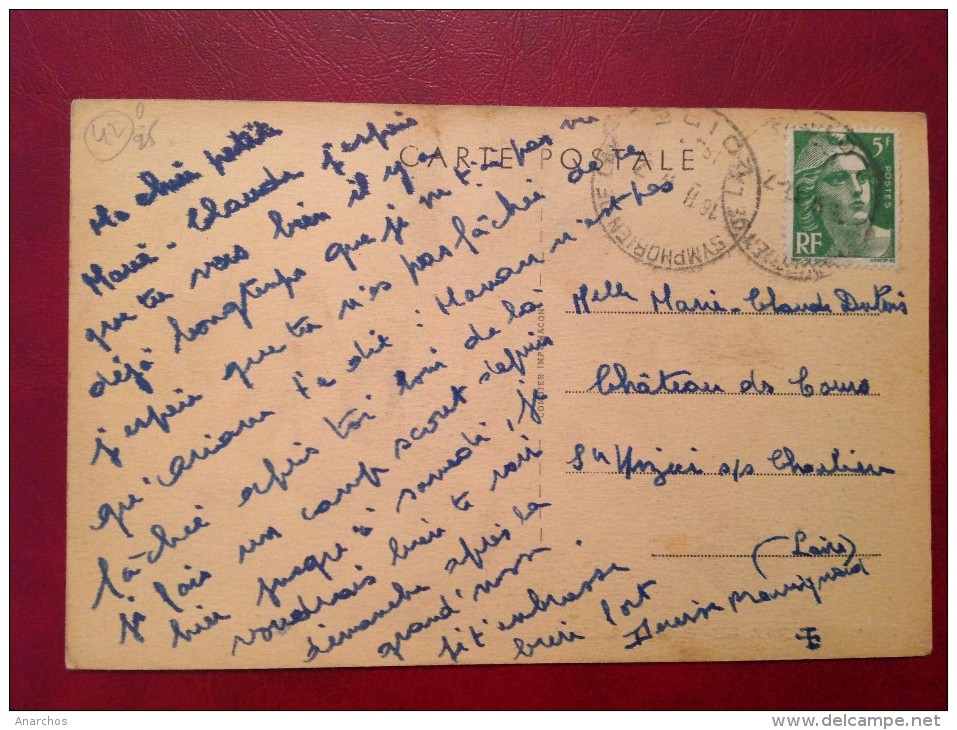 42
0
25
CARTE POSTALE
Ma chère petite
Marie-Claude, j'espère
que tu vas bien il y a
déjà longtemps que je ne t'ai pas vu
j'espère que tu n'es pas fâchée de ce
qu'Ariane t'a dit : Manou n'est pas
fâchée après toi loin de la
je fais un camp scout depuis
hier jusqu'à samedi, je
voudrais bien te voir
dimanche après la
grand'messe.
je t'embrasse
bien fort
Mauvignard
SYMPHORIEN
18 H
POSTES
5F
RF
CORDIER IMP. MACON
Melle Marie-Claude
Château de Cours
s/s Charlieu
(Loire)
Anarchos
www.delcampe.net